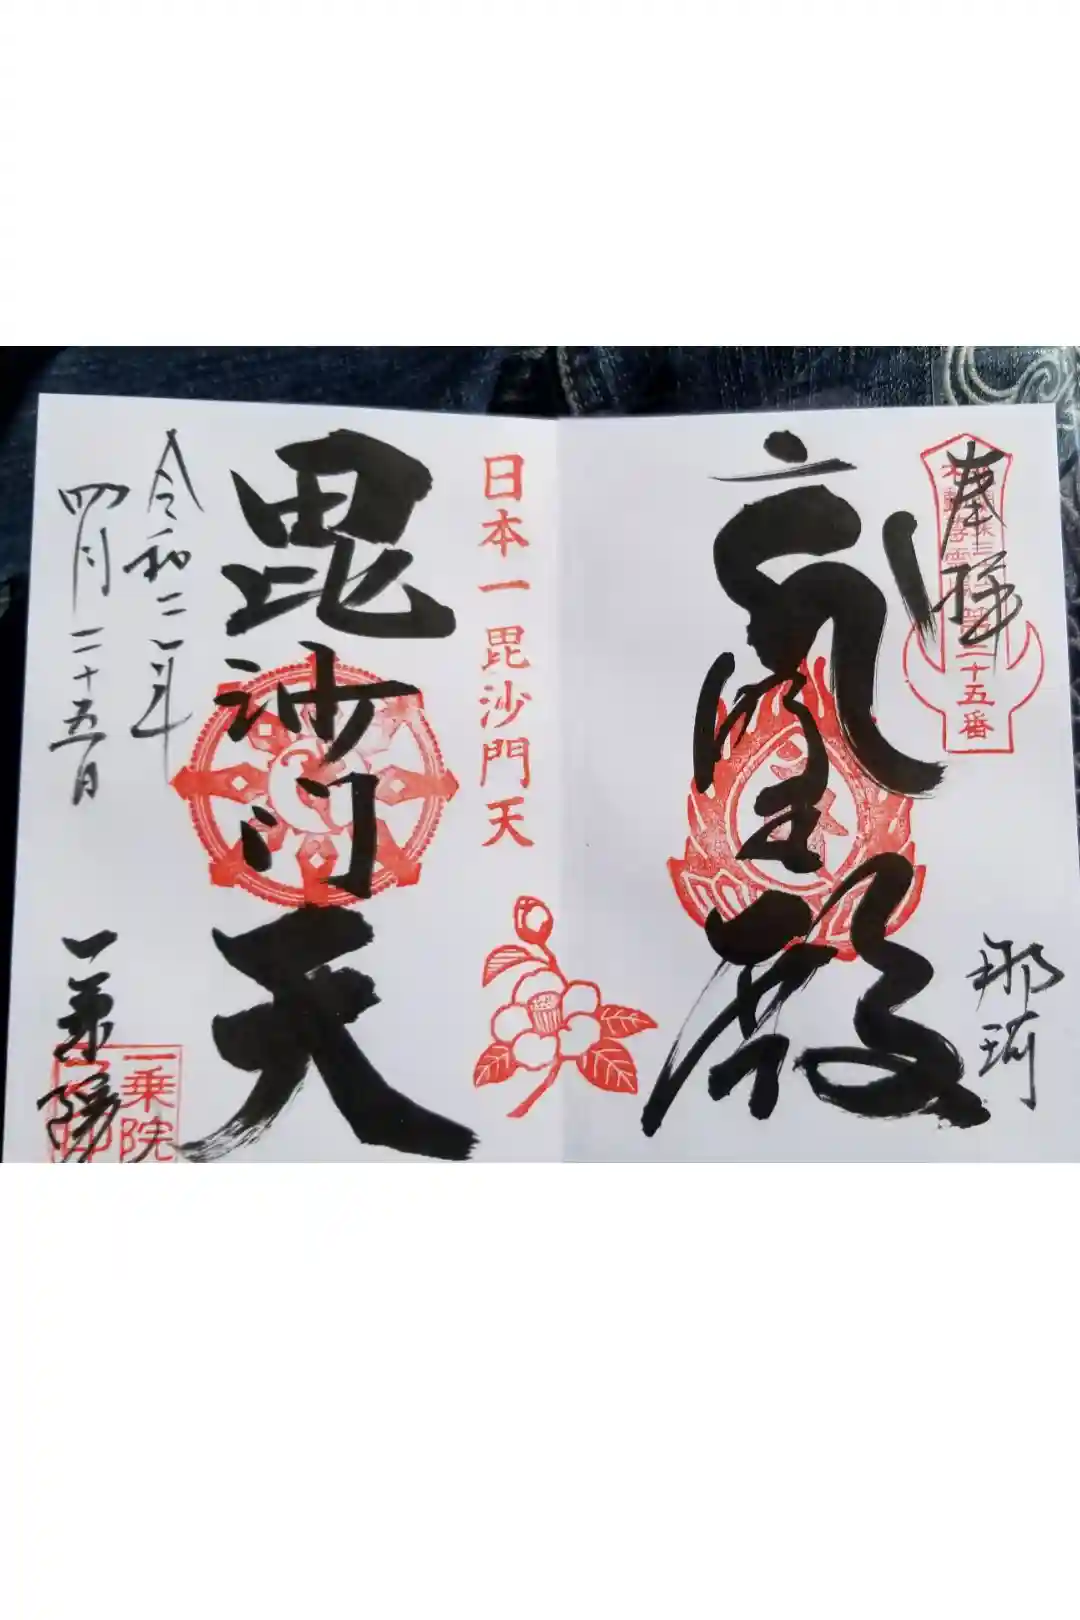 奉拝
十五番
明王殿
那珂
日本一毘沙門天
毘沙門天
令和二年
四月二十五日
一乗院
一乗院